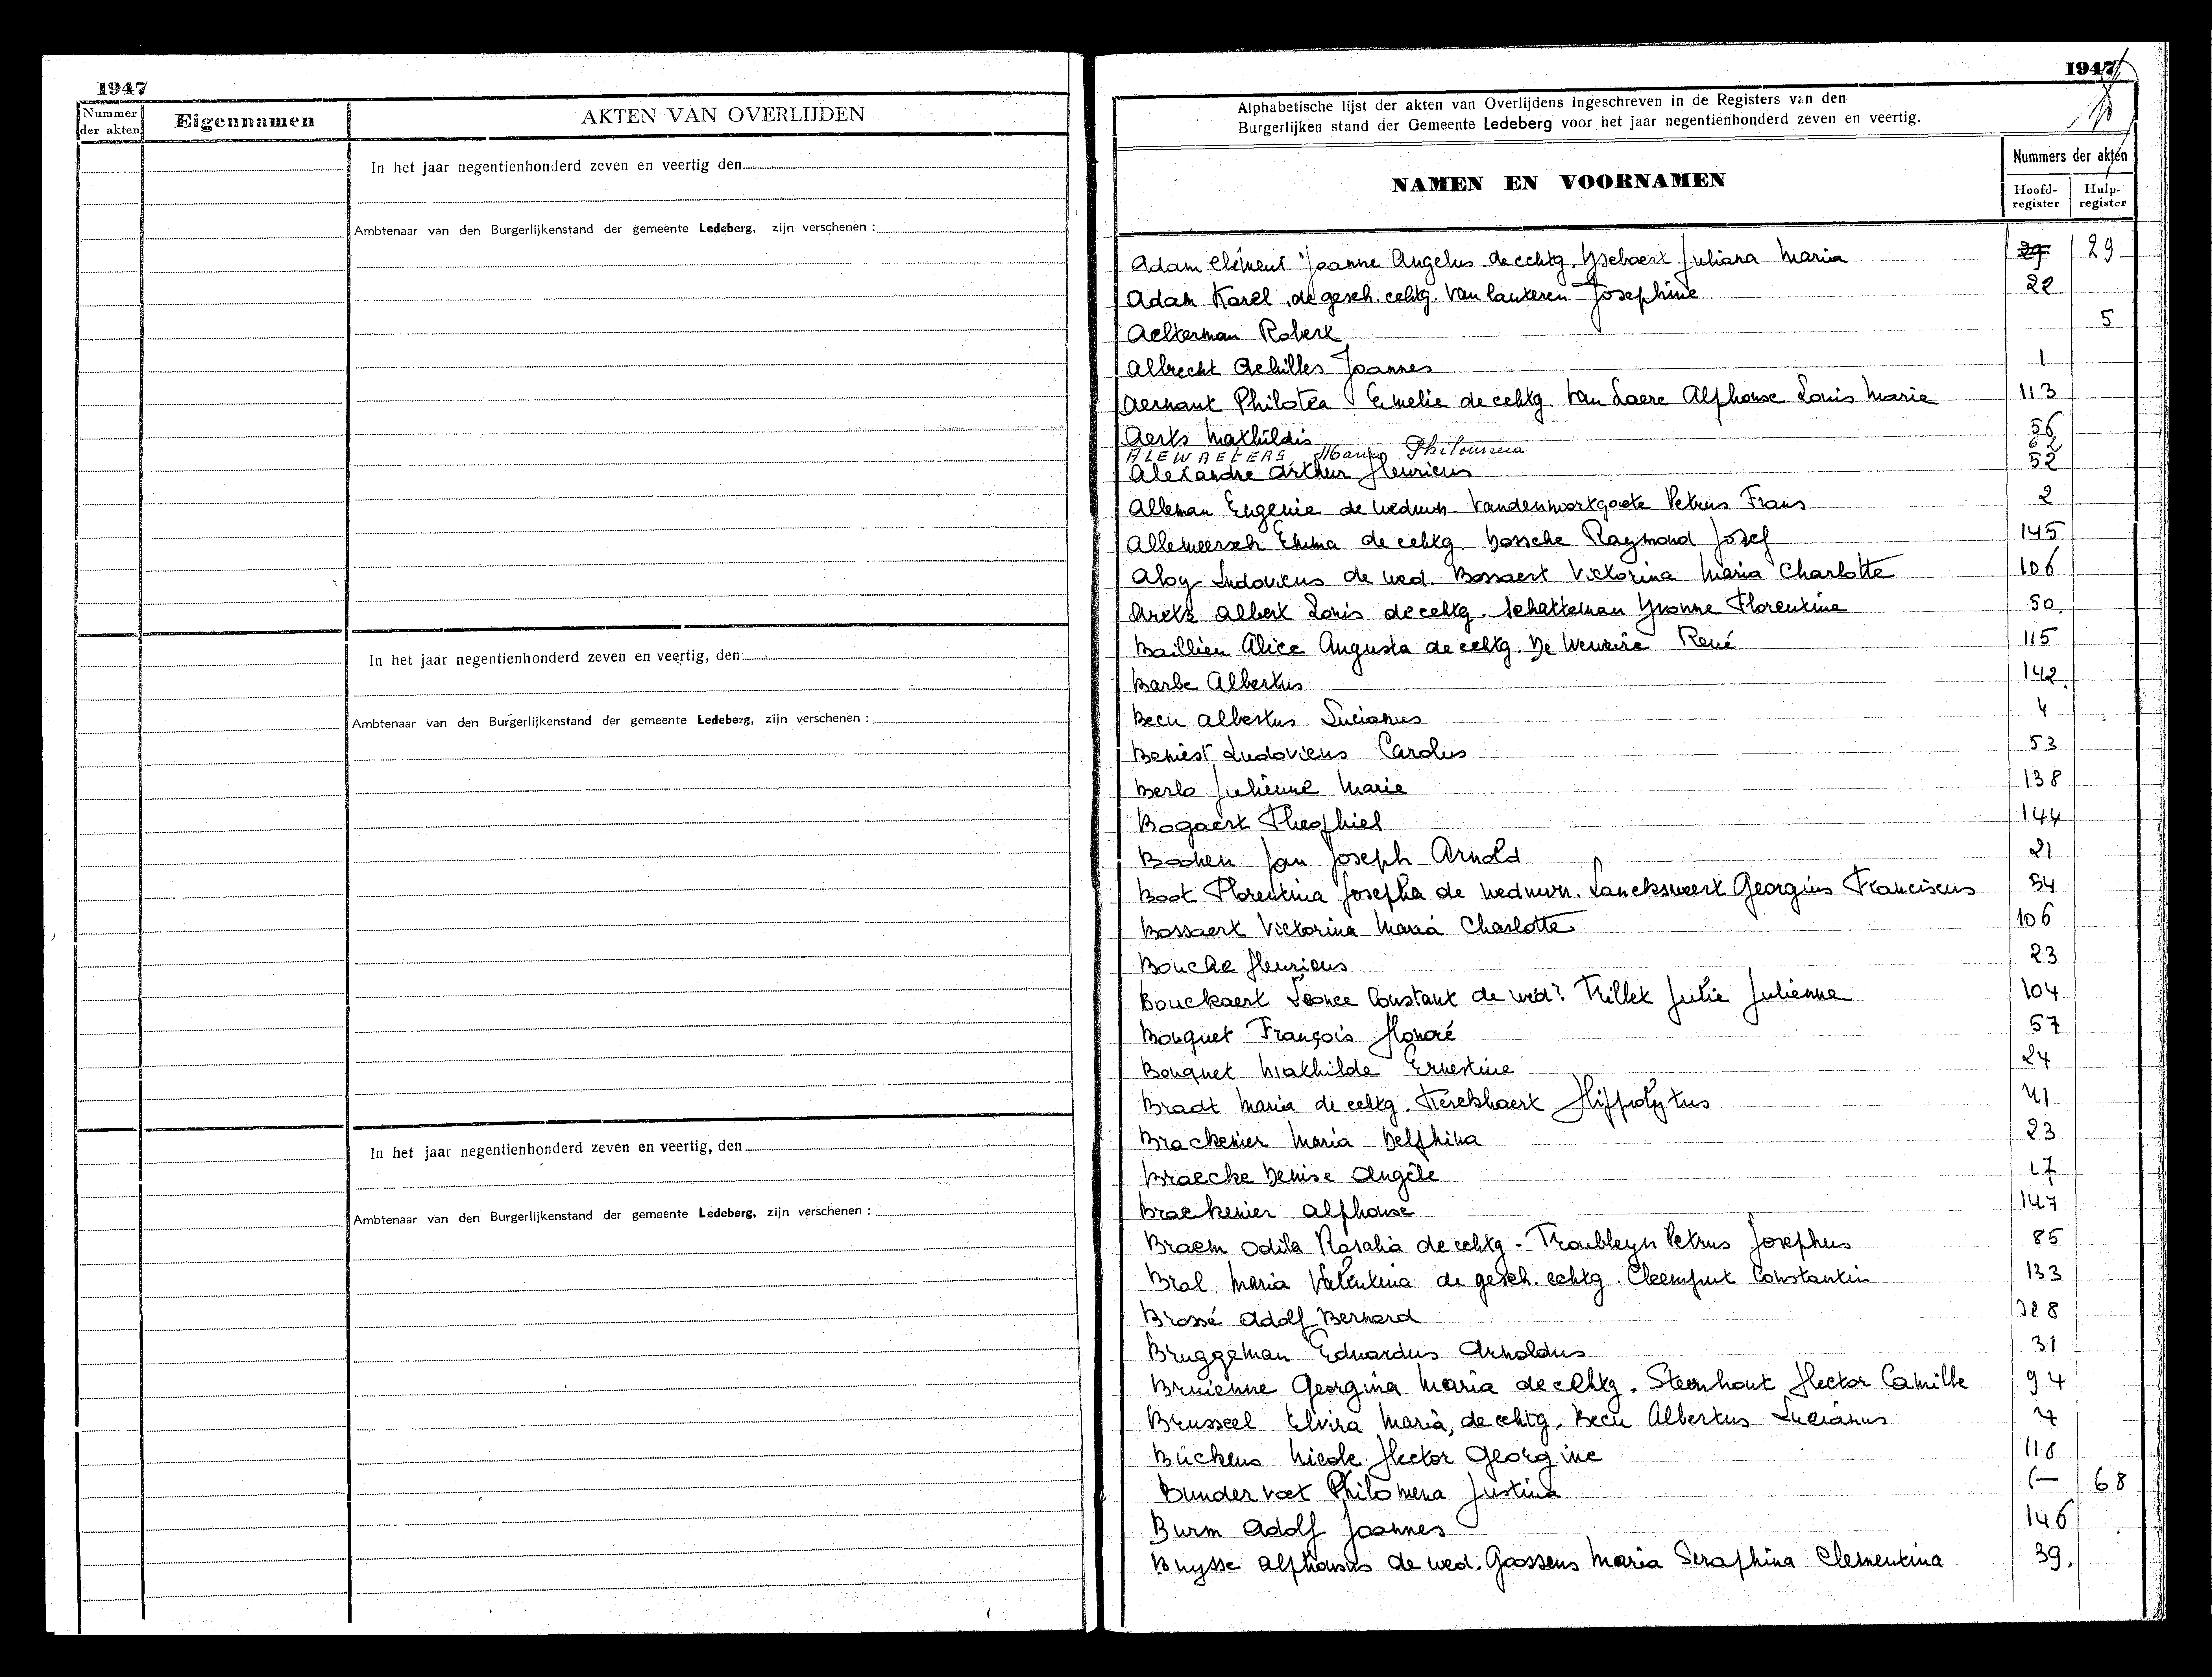 1947
Nummer der akten
Eigennamen
AKTEN VAN OVERLIJDEN
In het jaar negentienhonderd zeven en veertig den
Ambtenaar van den Burgerlijkenstand der gemeente Ledeberg, zijn verschenen :
In het jaar negentienhonderd zeven en veertig, den
Ambtenaar van den Burgerlijkenstand der gemeente Ledeberg, zijn verschenen :
In het jaar negentienhonderd zeven en veertig, den
Ambtenaar van den Burgerlijkenstand der gemeente Ledeberg, zijn verschenen :
1947
Alphabetische lijst der akten van Overlijdens ingeschreven in de Registers van den
Burgerlijken stand der Gemeente Ledeberg voor het jaar negentienhonderd zeven en veertig.
NAMEN EN VOORNAMEN
Nummers der akten
Hoofd-register
Hulp-register
Adam Clément Joanne Angelus de echtg. Ysebaert Juliana Maria 29 29
Adam Karel de gesch. echtg. Van lauteren Josephine 22
Aelterman Robert 5
Albrecht Achilles Joannes 1
Aernaut Philotéa Emelie de echtg. Van Laere Alphonse Louis Marie 113
Aerts Mathildis 56
ALEWAETERS Maria Philomena 62
Alexandre Arthur Henricus 52
Alleman Eugenie de weduwn Vandenwortgoete Petrus Frans 2
Allemeersch Emma de echtg. Bossche Raymond Josef 145
Aloy Ludovicus de wed. Bossaert Victorina Maria Charlotte 106
Arets Albert Louis de echtg. Schatteman Yvonne Florentine 50
Baillieu Alice Augusta de echtg. De René 115
Barbe Albertus 142
Becu Albertus Lucianus 4
Beniest Ludovicus Carolus 53
Berlo Julienne Marie 138
Bogaert Theophiel 144
Boonen Jan Joseph Arnold 21
Boot Florentina Josepha de weduwn. Lancksweert Georgius Franciscus 54
Bossaert Victorina Maria Charlotte 106
Bouche Henricus 23
Bouckaert Leonce Constant de wed? Trillet Julie Julienne 104
Bouquet François Honoré 57
Bouquet Mathilde Ernestine 24
Bradt Maria de echtg. Kerckhaert Hippolytus 41
Brackenier Maria Delphina 23
Braecke Denise Angèle 17
Braekenier Alphonse 147
Braem Odila Rosalia de echtg. Troubleyn Petrus Josephus 85
Bral Maria Valentina de gesch. echtg. Cleemput Constantin 133
Brossé Adolf Bernard 128
Bruggeman Eduardus Arnoldus 31
Bruienne Georgina Maria de echtg. Steenhout Hector Camille 94
Brusseel Elvira Maria, de echtg. Becu Albertus Lucianus 4
Bückens Nicole Hector Georgine 118
Bundervoet Philomena Justina — 68
Burm Adolf Joannes 146
Buysse Alphonsus de wed. Goossens Maria Seraphina Clementina 39.